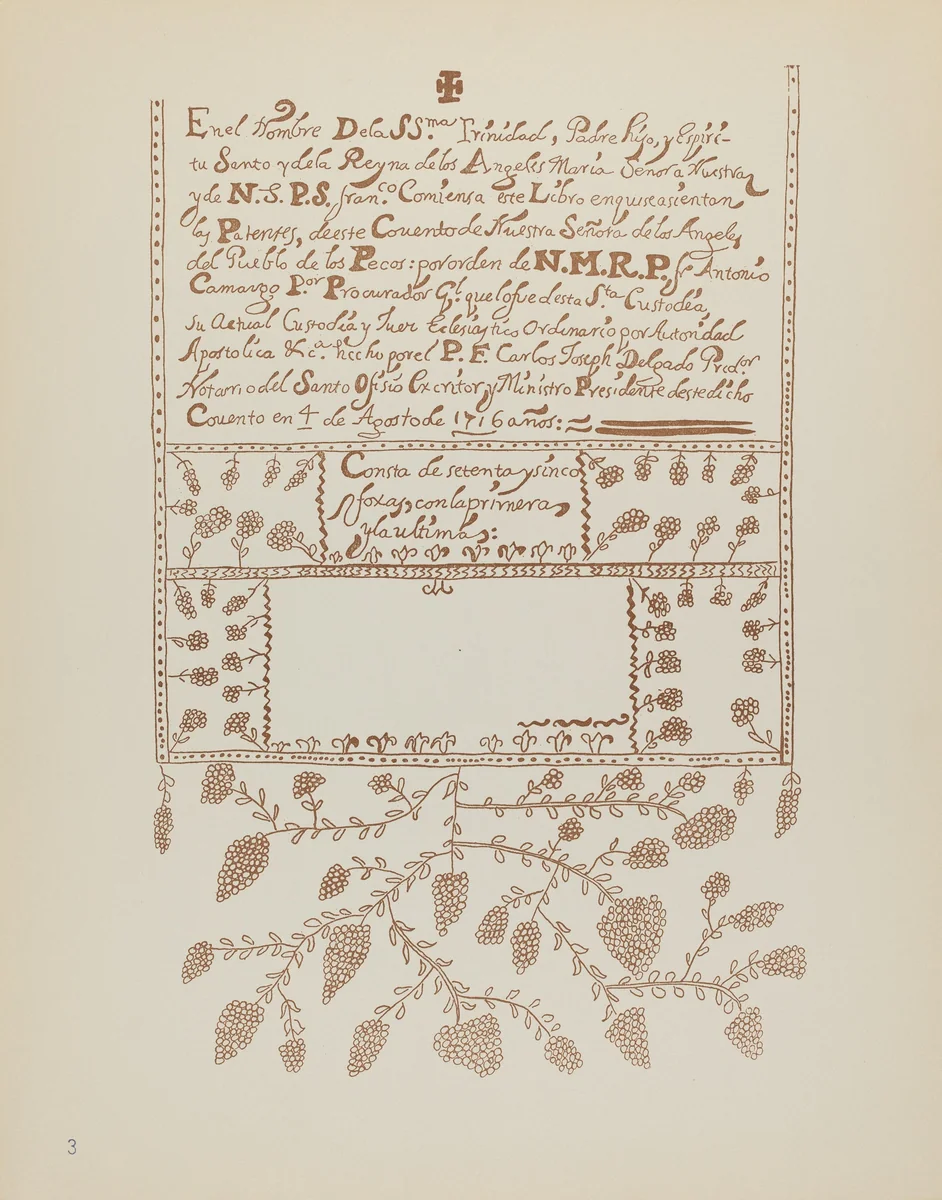 En el Nombre De la SS.ma Trinidad, Padre hijo, y Espiri-
tu Santo y de la Reyna de los Angeles Maria Señora Nuestra
y de N. S. P. S. fran.co Comiensa este Libro en quiseasientan
las Patentes, de este Covento de Nuestra Señora de los Angeles
del Pueblo de los Pecos: por orden de N. M. R. P. fr Antonio
Camargo P.or Procurador G.l que lo fue desta S.ta Custodéa,
su Actual Custodia y Juez Eclesiastico Ordinario por Autoridad
Apostolica &c.a hecho por el P. F. Carlos Joseph Delgado Pred.or
Notario del Santo Ofisio Excritor y Ministro Presidente deste dicho
Covento en 4 de Agosto de 1716 años:
Consta de setenta y sinco
foxas, con la primera
y la ultima:
3